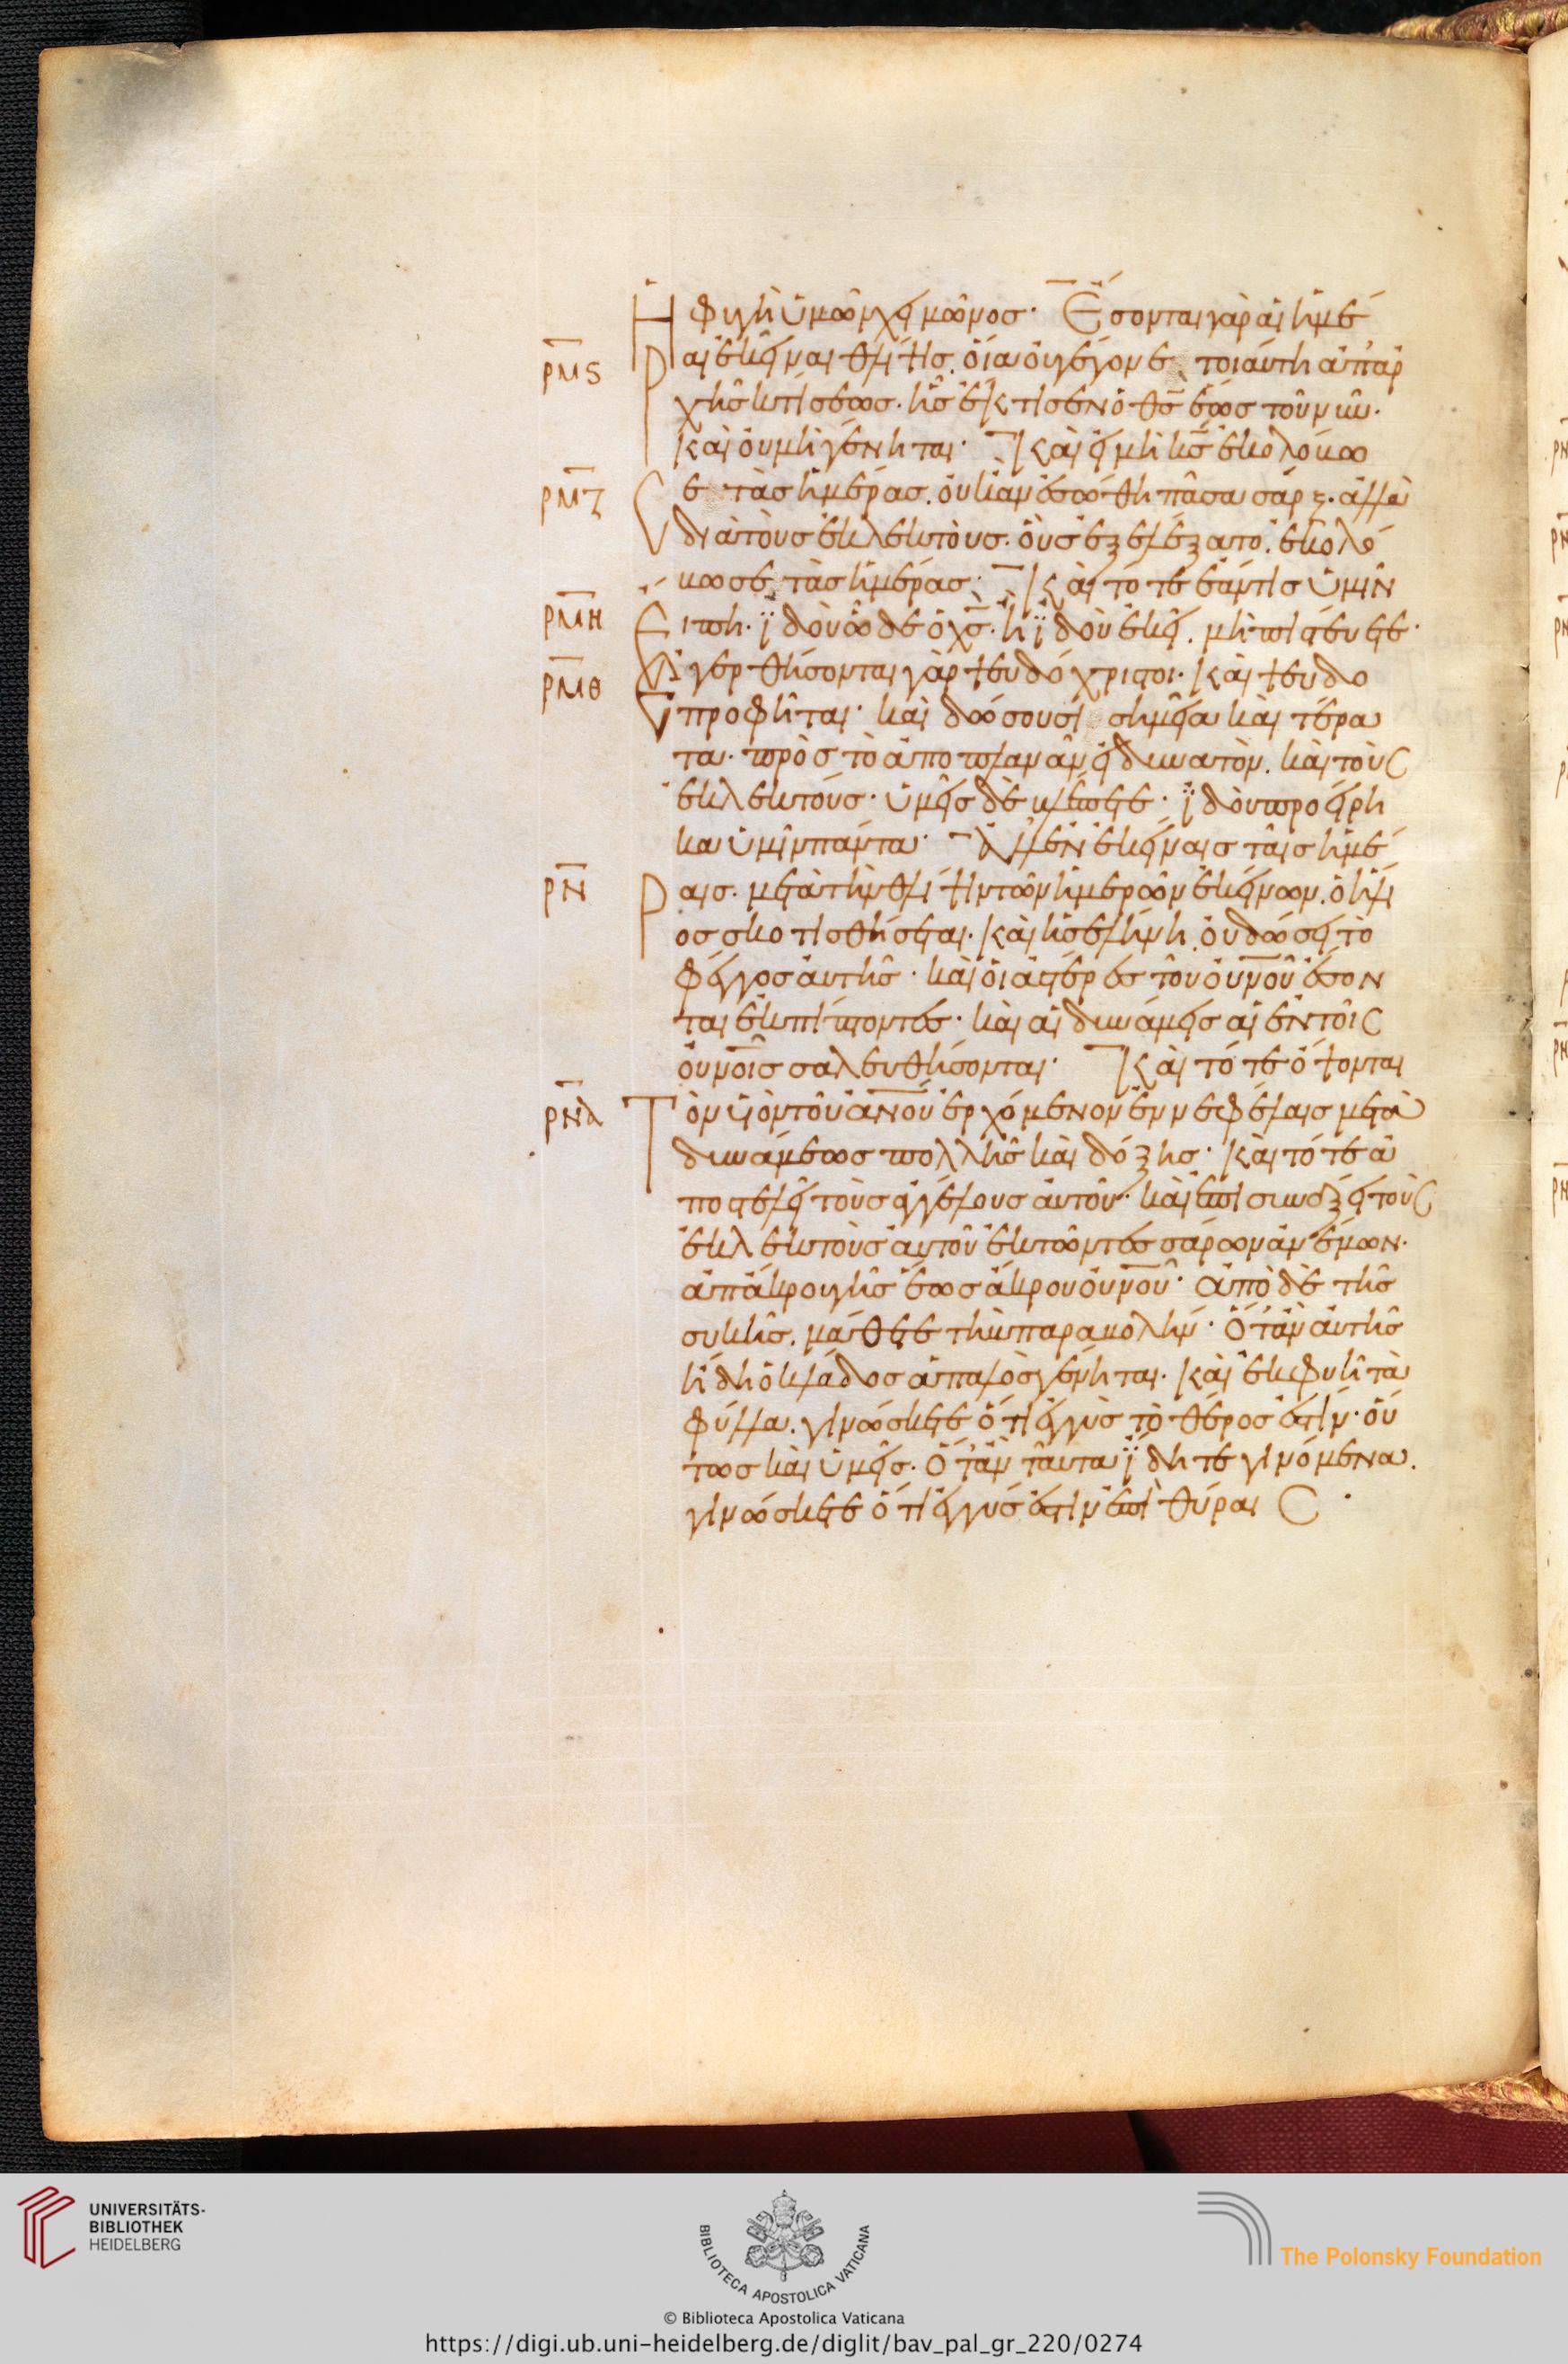 Ἡ φυγὴ ὑμῶν χειμῶνος· Ἔσονται γὰρ αἱ ἡμέ
ρμϛ ραι ἐκεῖναι θλίψις. οἵα οὐ γέγονε τοιαύτη ἀπ' ἀρ
χῆς κτίσεως. ἧς ἔκτισεν ὁ θς̅ ἕως τοῦ νῦν.
καὶ οὐ μὴ γένηται· καὶ εἰ μὴ κς̅ ἐκολόβω
ρμζ σε τὰς ἡμέρας. οὐκ ἂν ἐσώθη πᾶσα σάρξ. ἀλλὰ
διὰ τοὺς ἐκλεκτοὺς. οὓς ἐξελέξατο. ἐκολό
βωσε τὰς ἡμέρας· καὶ τότε ἐάν τις ὑμῖν
ρμη Εἴπη· ἰδοὺ ὧδε ὁ χς̅. ἢ ἰδοὺ ἐκεῖ. μὴ πιστεύετε·
ρμθ Ἐγερθήσονται γὰρ ψευδόχριστοι. καὶ ψευδο
προφῆται· καὶ δώσουσι σημεῖα καὶ τέρα
τα. πρὸς τὸ ἀποπλανᾶν εἰ δυνατὸν. καὶ τοὺς
ἐκλεκτούς· ὑμεῖς δὲ βλέπετε· ἰδοὺ προείρη
κα ὑμῖν πάντα· Ἀλλ' ἐν ἐκείναις ταῖς ἡμέ
ρν ραις. μετὰ τὴν θλίψιν τῶν ἡμερῶν ἐκείνων. ὁ ἥλι
ος σκοτισθήσεται. καὶ ἡ σελήνη οὐ δώσει τὸ
φέγγος αὐτῆς· καὶ οἱ ἀστέρες τοῦ οὐνοῦ̅ ἔσον
ται ἐκπίπτοντες· καὶ αἱ δυνάμεις αἱ ἐν τοῖς
οὐνοῖς̅ σαλευθήσονται· καὶ τότε ὄψονται
ρνα Τὸν υἱὸν τοῦ ἀνού̅ ἐρχόμενον ἐν νεφέλαις μετὰ
δυνάμεως πολλῆς καὶ δόξης· καὶ τότε ἀ
ποστελεῖ τοὺς ἀγγέλους αὐτοῦ· καὶ ἐπισυνάξει τοὺς
ἐκλεκτοὺς αὐτοῦ ἐκ τῶν τεσσάρων ἀνέμων.
ἀπ' ἄκρου γῆς ἕως ἄκρου οὐνοῦ̅· ἀπὸ δὲ τῆς
συκῆς. μάθετε τὴν παραβολήν· Ὅταν αὐτῆς
ἤδη ὁ κλάδος ἁπαλὸς γένηται. καὶ ἐκφυῆ τὰ
φύλλα. γινώσκετε ὅτι ἐγγὺς τὸ θέρος ἐστίν· οὕ
τως καὶ ὑμεῖς. Ὅταν ταῦτα ἴδητε γινόμενα.
γινώσκετε ὅτι ἐγγύς ἐστιν ἐπὶ θύραις·
UNIVERSITÄTS-
BIBLIOTHEK
HEIDELBERG
BIBLIOTECA APOSTOLICA VATICANA
© Biblioteca Apostolica Vaticana
The Polonsky Foundation
https://digi.ub.uni-heidelberg.de/diglit/bav_pal_gr_220/0274